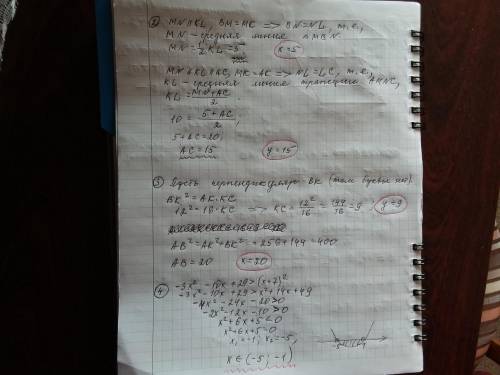 ② MN ∥ KL, BM=MK => BN=NL, т.е.,
MN - средняя линия △ KBL.
MN = 1/2 KL = 5
x=5
MN ∥ KL ∥ AC, MK=AK => NL=LC, т.е.,
KL - средняя линия трапеции AMNC,
KL = (MN+AC)/2
10 = (5+AC)/2;
5+AC=20;
AC=15
y=15
③ Пусть перпендикуляр BK (там буквы нет).
BK² = AK·KC
12² = 16·KC => KC = 12²/16 = 144/16 = 9
y=9
AB² = AK²+BK² = 256+144=400
AB=20
x=20
④ -3x²-10x+29>(x+7)²
-3x²-10x+29>x²+14x+49
-4x²-24x-20>0
-2x²-12x-10>0
x²+6x+5<0
x²+6x+5=0
x₁=-1; x₂=-5,
x∈(-5;-1)